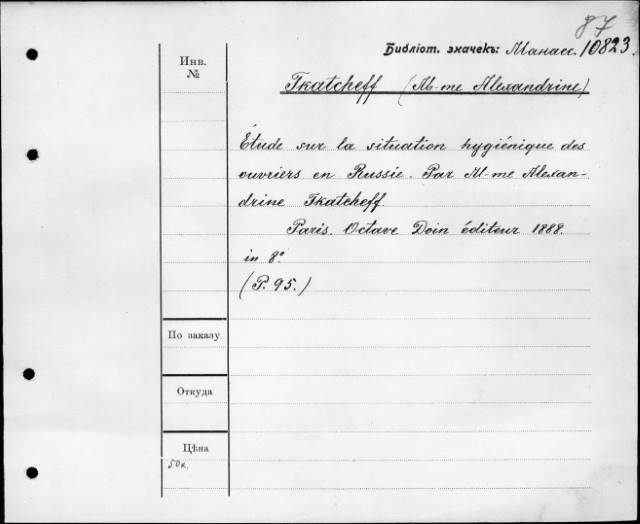 87
Библіот. значекъ: Манасе. 10823.
Инв.
№
Tkatcheff (M-me Alexandrine)
Étude sur la situation hygiénique des
ouvriers en Russie. Par M-me Alexan-
drine Tkatcheff.
Paris. Octave Doin éditeur 1888.
in 8°
(P. 95.)
По заказу
Откуда
Цѣна
50 к.